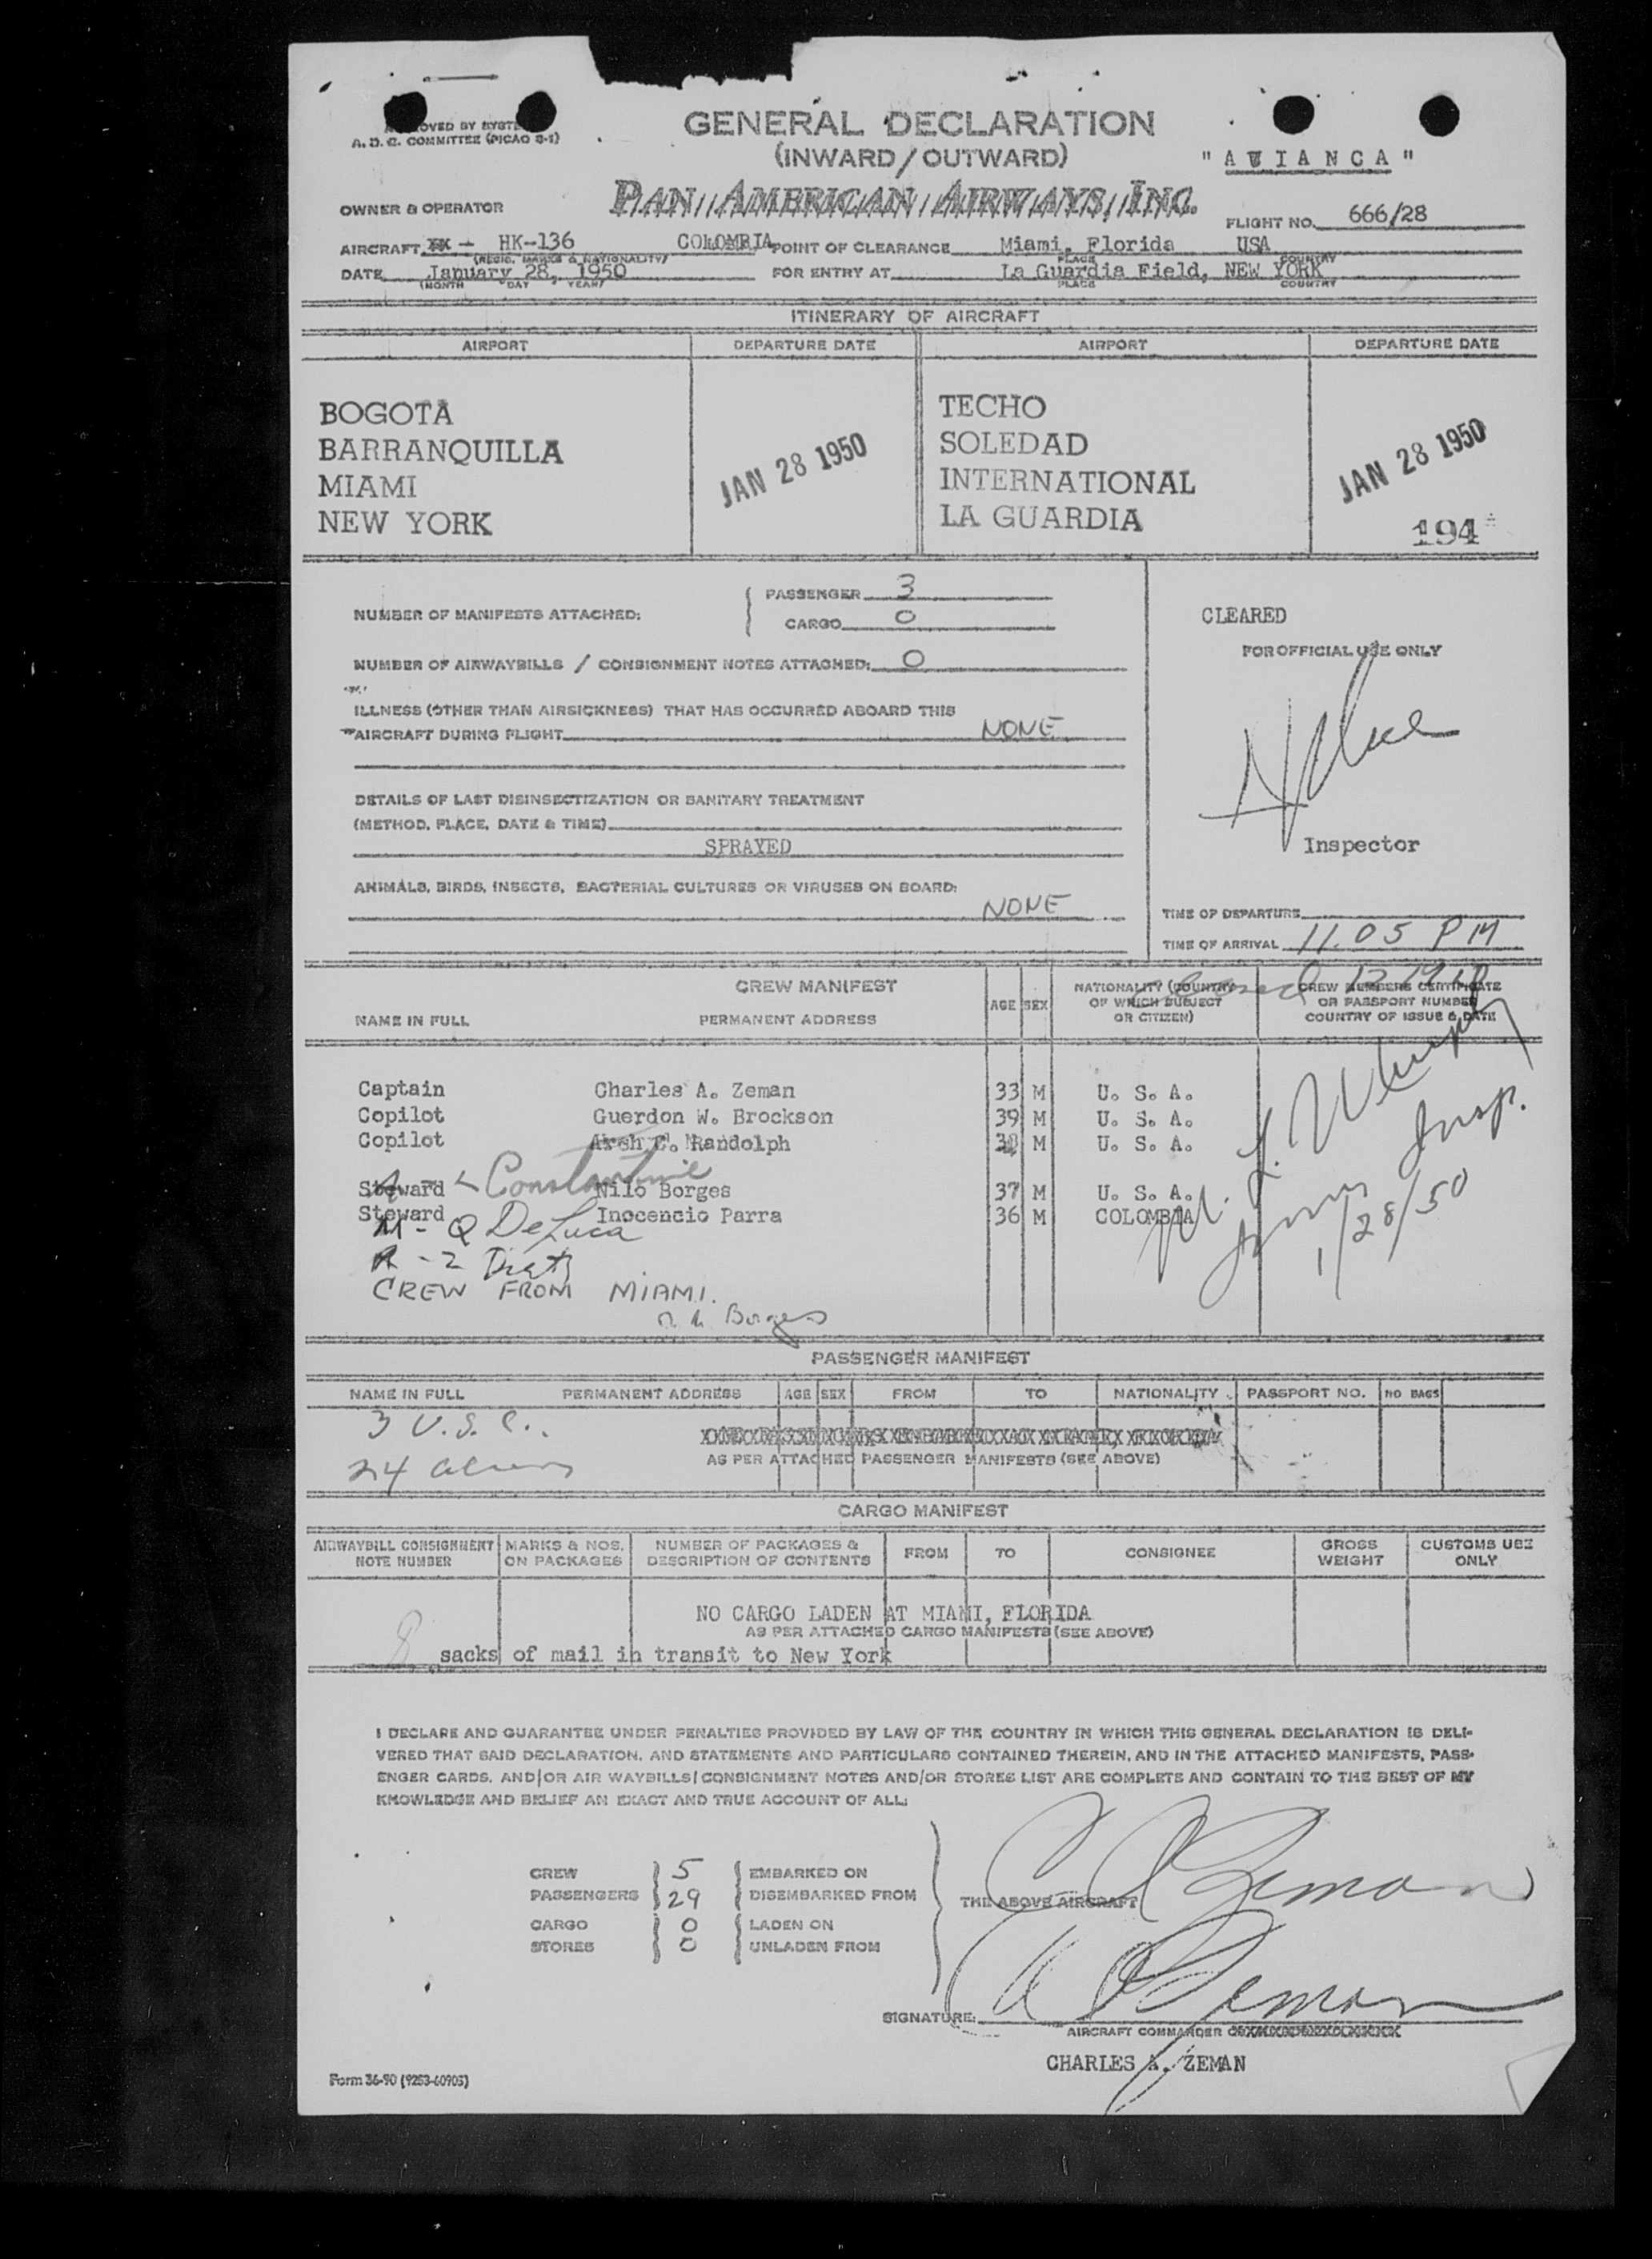 GENERAL DECLARATION
(INWARD/OUTWARD)
A. D. C. COMMITTEE (PICAO S-1)
"AVIANCA"
OWNER & OPERATOR PAN AMERICAN AIRWAYS, INC.
FLIGHT NO. 666/28
AIRCRAFT HK-136 COLOMBIA POINT OF CLEARANCE Miami, Florida USA
(REGIS. MARKS & NATIONALITY) PLACE COUNTRY
DATE January 28, 1950 FOR ENTRY AT La Guardia Field, NEW YORK
(MONTH DAY YEAR) PLACE COUNTRY
ITINERARY OF AIRCRAFT
AIRPORT DEPARTURE DATE AIRPORT DEPARTURE DATE
BOGOTA TECHO
BARRANQUILLA JAN 28 1950 SOLEDAD JAN 28 1950
MIAMI INTERNATIONAL
NEW YORK LA GUARDIA 194
NUMBER OF MANIFESTS ATTACHED: PASSENGER 3
CARGO 0
NUMBER OF AIRWAYBILLS / CONSIGNMENT NOTES ATTACHED: 0
ILLNESS (OTHER THAN AIRSICKNESS) THAT HAS OCCURRED ABOARD THIS
AIRCRAFT DURING FLIGHT NONE
DETAILS OF LAST DISINSECTIZATION OR SANITARY TREATMENT
(METHOD, PLACE, DATE & TIME)
SPRAYED
ANIMALS, BIRDS, INSECTS, BACTERIAL CULTURES OR VIRUSES ON BOARD:
NONE
CLEARED
FOR OFFICIAL USE ONLY
Inspector
TIME OF DEPARTURE
TIME OF ARRIVAL 11.05 PM
CREW MANIFEST
NAME IN FULL PERMANENT ADDRESS AGE SEX
NATIONALITY (COUNTRY OF WHICH SUBJECT OR CITIZEN)
CREW MEMBERS CERTIFICATE OR PASSPORT NUMBER COUNTRY OF ISSUE & DATE
Captain Charles A. Zeman 33 M U. S. A.
Copilot Guerdon W. Brockson 39 M U. S. A.
Copilot Arch C. Randolph M U. S. A.
Constantine
Steward Nilo Borges 37 M U. S. A.
Steward Inocencio Parra 36 M COLOMBIA
M - Q DeLuca
R - 2
CREW FROM MIAMI.
Borges
Insp.
1/28/50
PASSENGER MANIFEST
NAME IN FULL PERMANENT ADDRESS AGE SEX FROM TO NATIONALITY PASSPORT NO. NO BAGS
3 U.S.C.
24 aliens
AS PER ATTACHED PASSENGER MANIFESTS (SEE ABOVE)
CARGO MANIFEST
AIRWAYBILL CONSIGNMENT NOTE NUMBER
MARKS & NOS. ON PACKAGES
NUMBER OF PACKAGES & DESCRIPTION OF CONTENTS
FROM TO CONSIGNEE
GROSS WEIGHT
CUSTOMS USE ONLY
NO CARGO LADEN AT MIAMI, FLORIDA
AS PER ATTACHED CARGO MANIFESTS (SEE ABOVE)
8 sacks of mail in transit to New York
I DECLARE AND GUARANTEE UNDER PENALTIES PROVIDED BY LAW OF THE COUNTRY IN WHICH THIS GENERAL DECLARATION IS DELI-
VERED THAT SAID DECLARATION, AND STATEMENTS AND PARTICULARS CONTAINED THEREIN, AND IN THE ATTACHED MANIFESTS, PASS-
ENGER CARDS, AND/OR AIR WAYBILLS/CONSIGNMENT NOTES AND/OR STORES LIST ARE COMPLETE AND CONTAIN TO THE BEST OF MY
KNOWLEDGE AND BELIEF AN EXACT AND TRUE ACCOUNT OF ALL:
CREW 5 EMBARKED ON
PASSENGERS 29 DISEMBARKED FROM
THE ABOVE AIRCRAFT
CARGO 0 LADEN ON
STORES 0 UNLADEN FROM
C A Zeman
SIGNATURE: C A Zeman
AIRCRAFT COMMANDER
CHARLES A. ZEMAN
Form 36-90 (9253-60905)